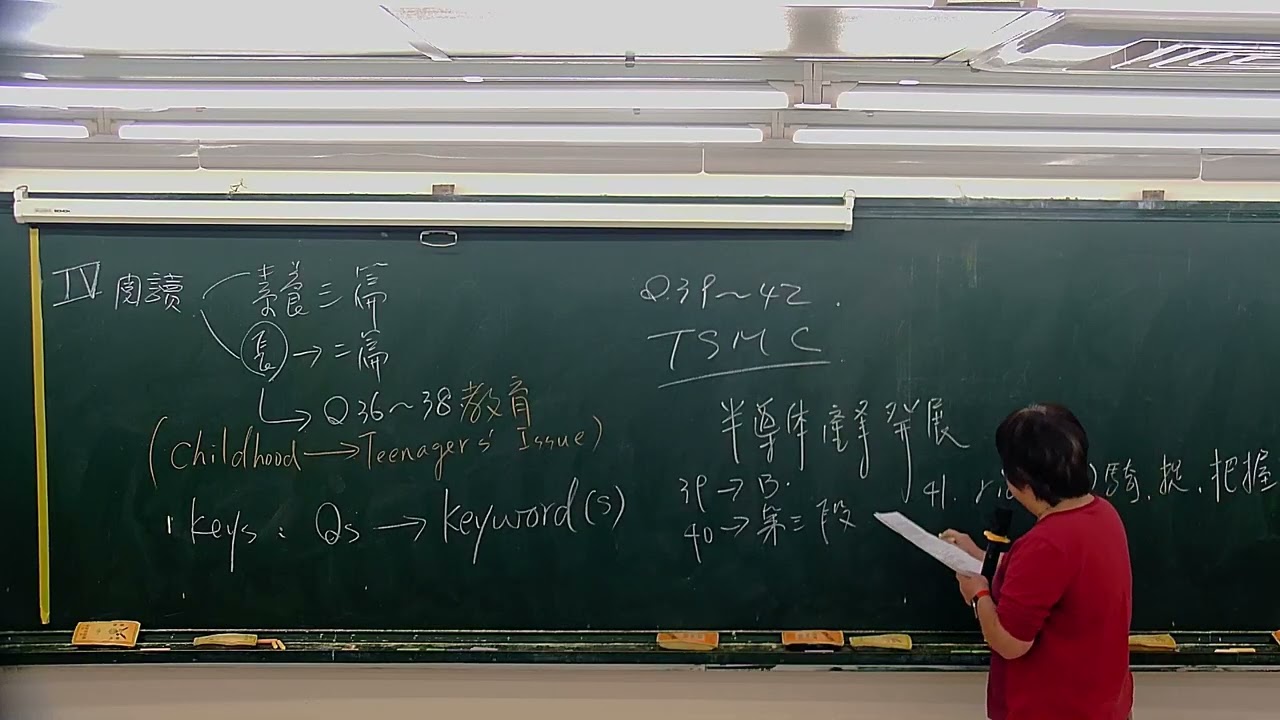 IV 閱讀
素養三篇
長 → 二篇
Q36～38 教育
(childhood → Teenagers' Issue)
keys : Qs → keyword(s)
Q39～42.
TSMC
半導體產業發展
39 → B.
40 → 第三段
41.
騎, 捉, 把握